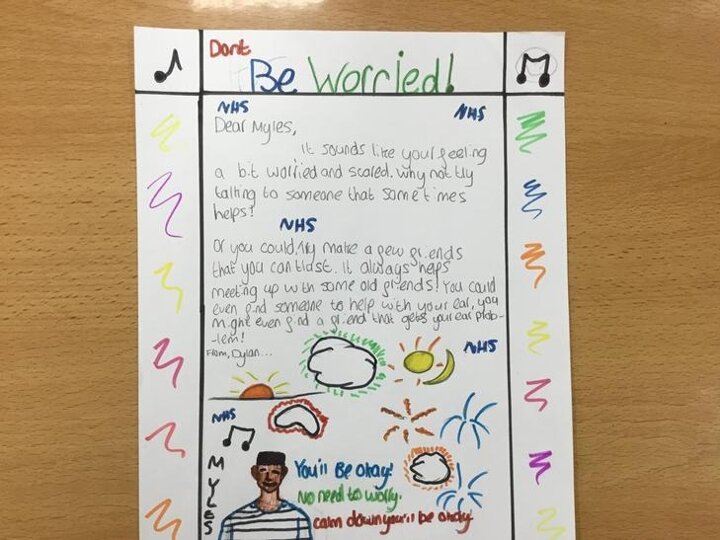 Dont
Be Worried!
NHS
NHS
Dear Myles,
It sounds like your feeling
a bit worried and scared. why not try
talking to someone that sometimes
helps!
NHS
Or you could try make a few friends
that you can trust. it always helps
meeting up with some old friends! You could
even find someone to help with your ear, you
might even find a friend that gets your ear prob-
-lem!
From, Dylan...
NHS
NHS
MYLES
You'll Be Okay!
No need to worry.
calm down you'll be okay